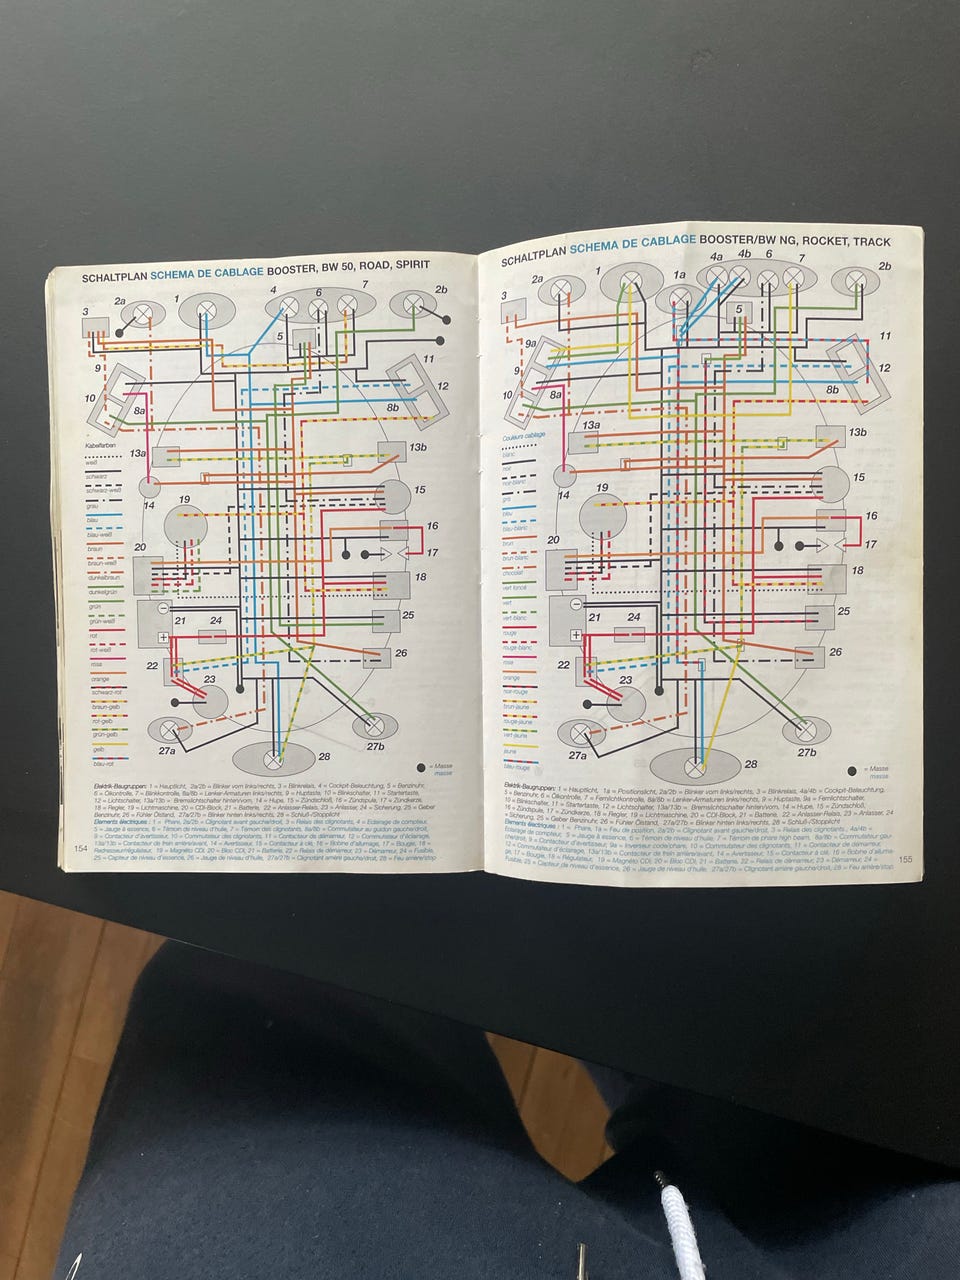 SCHALTPLAN SCHEMA DE CABLAGE BOOSTER, BW 50, ROAD, SPIRIT
2a
1
4
6
7
2b
3
5
9
11
10
12
8a
8b
Kabelfarben
weiß
schwarz
schwarz-weiß
grau
blau
blau-weiß
braun
braun-weiß
dunkelbraun
dunkelgrün
grün
grün-weiß
rot
rot-weiß
rosa
orange
schwarz-rot
braun-gelb
rot-gelb
grün-gelb
gelb
blau-rot
13a
13b
14
15
19
16
17
20
18
21
24
25
22
23
26
27a
28
27b
= Masse
masse
Elektrik-Baugruppen: 1 = Hauptlicht, 2a/2b = Blinker vorn links/rechts, 3 = Blinkrelais, 4 = Cockpit-Beleuchtung, 5 = Benzinuhr,
6 = Ölkontrolle, 7 = Blinkkontrolle, 8a/8b = Lenker-Armaturen links/rechts, 9 = Huptaste, 10 = Blinkschalter, 11 = Startertaste,
12 = Lichtschalter, 13a/13b = Bremslichtschalter hinten/vorn, 14 = Hupe, 15 = Zündschloß, 16 = Zündspule, 17 = Zündkerze,
18 = Regler, 19 = Lichtmaschine, 20 = CDI-Block, 21 = Batterie, 22 = Anlasser-Relais, 23 = Anlasser, 24 = Sicherung, 25 = Geber
Benzinuhr, 26 = Fühler Ölstand, 27a/27b = Blinker hinten links/rechts, 28 = Schluß-/Stopplicht
Elements électriques : 1 = Phare, 2a/2b = Clignotant avant gauche/droit, 3 = Relais des clignotants, 4 = Eclairage de compteur,
5 = Jauge à essence, 6 = Témoin de niveau d'huile, 7 = Témoin des clignotants, 8a/8b = Commutateur au guidon gauche/droit,
9 = Contacteur d'avertisseur, 10 = Commutateur des clignotants, 11 = Contacteur de démarreur, 12 = Commutateur d'éclairage,
13a/13b = Contacteur de frein arrière/avant, 14 = Avertisseur, 15 = Contacteur à clé, 16 = Bobine d'allumage, 17 = Bougie, 18 =
Redresseur/régulateur, 19 = Magnéto CDI, 20 = Bloc CDI, 21 = Batterie, 22 = Relais de démarreur, 23 = Démarreur, 24 = Fusible,
25 = Capteur de niveau d'essence, 26 = Jauge de niveau d'huile, 27a/27b = Clignotant arrière gauche/droit, 28 = Feu arrière/stop
154
SCHALTPLAN SCHEMA DE CABLAGE BOOSTER/BW NG, ROCKET, TRACK
2a
1
1a
4a
4b
6
7
2b
3
5
9a
11
9
12
10
8a
8b
Couleurs cablage
blanc
noir
noir-blanc
gris
bleu
bleu-blanc
brun
brun-blanc
chocolat
vert foncé
vert
vert-blanc
rouge
rouge-blanc
rose
orange
noir-rouge
brun-jaune
rouge-jaune
vert-jaune
jaune
bleu-rouge
13a
13b
14
15
19
16
17
20
18
21
24
25
22
23
26
27a
28
27b
= Masse
masse
Elektrik-Baugruppen: 1 = Hauptlicht, 1a = Positionslicht, 2a/2b = Blinker vorn links/rechts, 3 = Blinkrelais, 4a/4b = Cockpit-Beleuchtung,
5 = Benzinuhr, 6 = Ölkontrolle, 7 = Fernlichtkontrolle, 8a/8b = Lenker-Armaturen links/rechts, 9 = Huptaste, 9a = Fernlichtschalter,
10 = Blinkschalter, 11 = Startertaste, 12 = Lichtschalter, 13a/13b = Bremslichtschalter hinten/vorn, 14 = Hupe, 15 = Zündschloß,
16 = Zündspule, 17 = Zündkerze, 18 = Regler, 19 = Lichtmaschine, 20 = CDI-Block, 21 = Batterie, 22 = Anlasser-Relais, 23 = Anlasser, 24
= Sicherung, 25 = Geber Benzinuhr, 26 = Fühler Ölstand, 27a/27b = Blinker hinten links/rechts, 28 = Schluß-/Stopplicht
Elements électriques : 1 = Phare, 1a = Feu de position, 2a/2b = Clignotant avant gauche/droit, 3 = Relais des clignotants, 4a/4b =
Eclairage de compteur, 5 = Jauge à essence, 6 = Témoin de niveau d'huile, 7 = Témoin phare high beam, 8a/8b = Commutateur gau-
che/droit, 9 = Contacteur d'avertisseur, 9a = Inverseur code/phare, 10 = Commutateur des clignotants, 11 = Contacteur de démarreur,
12 = Commutateur d'éclairage, 13a/13b = Contacteur de frein arrière/avant, 14 = Avertisseur, 15 = Contacteur à clé, 16 = Bobine d'alluma-
ge, 17 = Bougie, 18 = Régulateur, 19 = Magnéto CDI, 20 = Bloc CDI, 21 = Batterie, 22 = Relais de démarreur, 23 = Démarreur, 24 =
Fusible, 25 = Capteur de niveau d'essence, 26 = Jauge de niveau d'huile, 27a/27b = Clignotant arrière gauche/droit, 28 = Feu arrière/stop
155